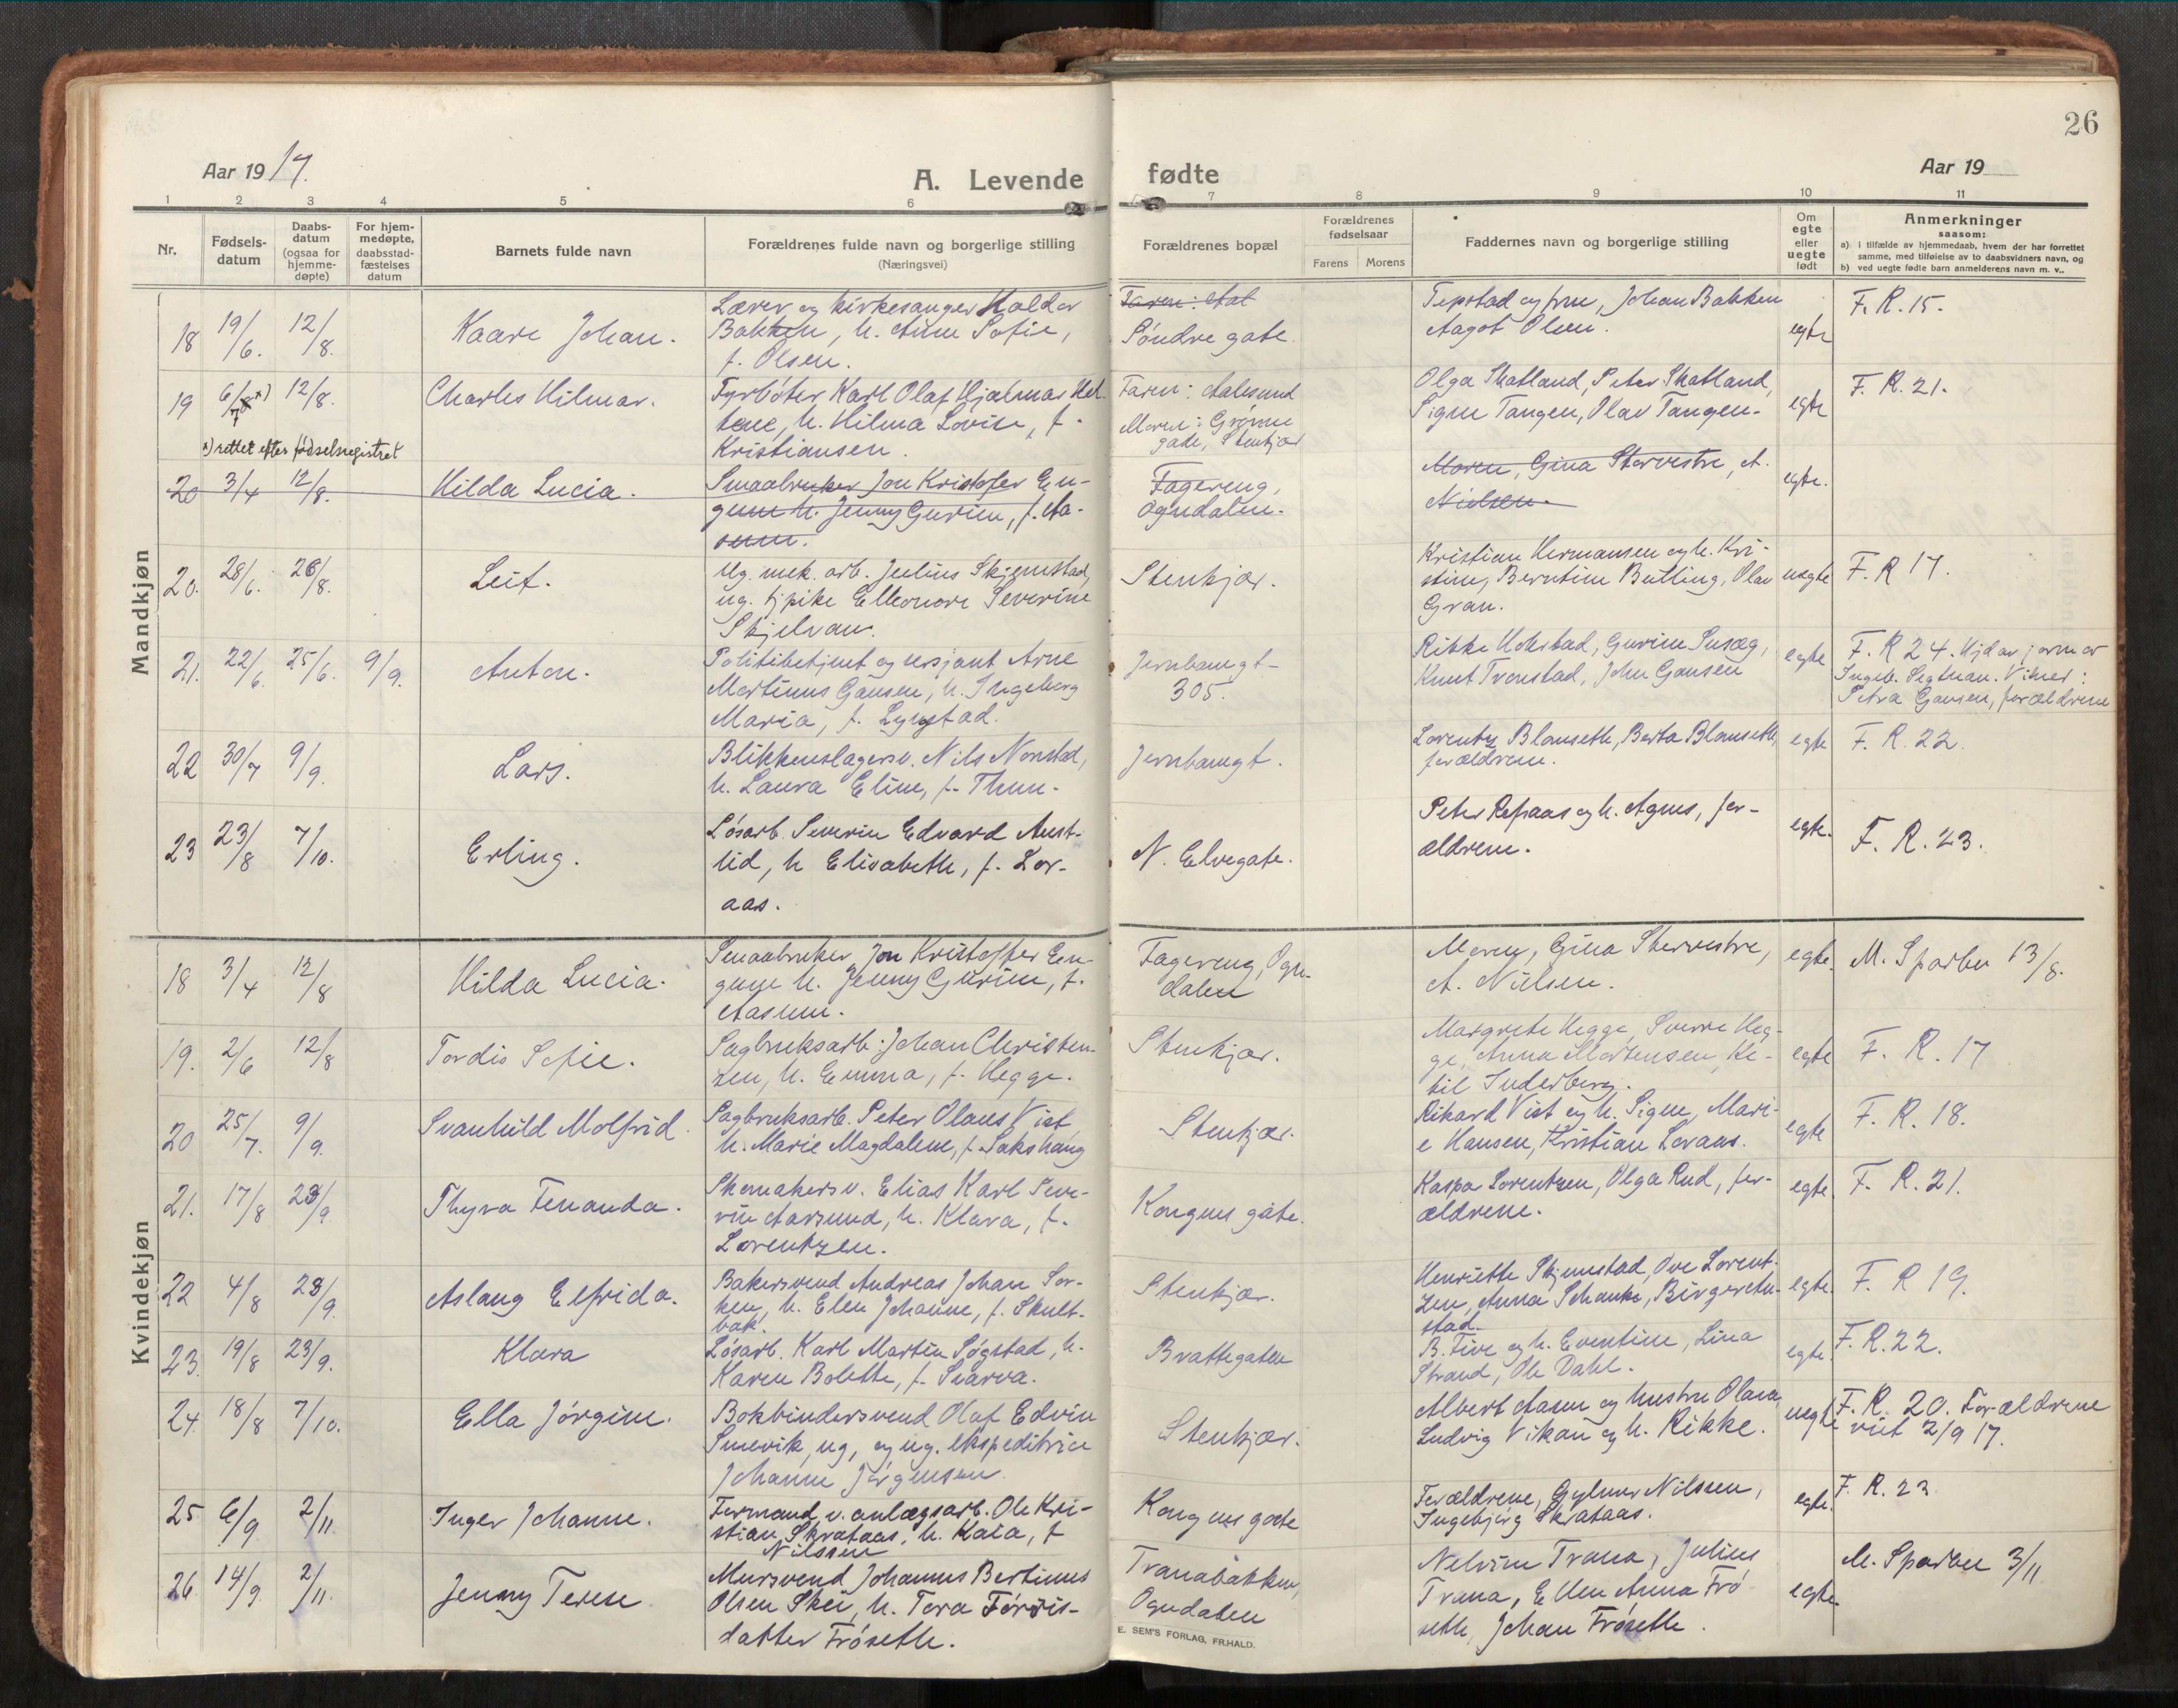 26
Aar 1917.
A. Levende fødte
Aar 19
1 2 3 4 5 6 7 8 9 10 11
Nr.
Fødsels-
datum
Daabs-
datum
(ogsaa for
hjemme-
døpte)
For hjem-
medøpte,
daabsstad-
fæstelses
datum
Barnets fulde navn
Forældrenes fulde navn og borgerlige stilling
(Næringsvei)
Forældrenes bopæl
Forældrenes
fødselsaar
Farens Morens
Faddernes navn og borgerlige stilling
Om
egte
eller
uegte
født
Anmerkninger
saasom:
a) i tilfælde av hjemmedaab, hvem der har forrettet
samme, med tilføielse av to daabsvidners navn, og
b) ved uegte fødte barn anmelderens navn m. v..
Mandkjøn
18 19/6. 12/8. Kaare Johan.
Lærer og kirkesanger Haldor
Bakken, h. Anne Sofie,
f. Olsen.
Søndre gate.
og frue, Johan Bakken
Aagot Olsen.
egte
F. R. 15.
19 6/7 *) 12/8. Charles Hilmar.
*) rettet efter fødselsregistret
Fyrbøter Karl Olaf Hjalmar
h. Hilma Lovise, f.
Kristiansen.
Faren: Aalesund
Moren: Grønne
gade, Stenkjær
Olga Skatland, Peter Skatland,
Signe Tangen, Olav Tangen.
egte
F. R. 21.
20 3/4 12/8. Hilda Lucia.
Smaabruker Jon Kristofer En-
gum h. Jenny Gurine, f. Aa-
sum.
Fagereng,
Ogndalen.
Moren, Gina Storvestre, A.
Nielsen.
egte.
20. 28/6. 26/8. Leif.
Ug. mek. arb. Julius Skjemstad,
ug. tjpike Elleonore Severine
Skjelvan.
Stenkjær.
Kristian Hermansen og h. Kri-
stine, Berntine Butling, Olav
Gran.
uegte
F. R 17.
21. 22/6. 25/6. 9/9. Anton.
Politibetjent og sersjant Arne
Martinus Gausen, h. Ingeborg
Maria, f. Lynstad.
Jernbanegt-
305.
Rikke Hokstad, Gurine
Knut Tronstad, John Gausen
egte
F. R 24. Hjd av jormor
Ingeb. Segtnan. Vitner:
Petra Gausen, forældrene
22 30/7 9/9. Lars.
Blikkenslagersv. Nils Nonstad,
h. Laura Eline, f. Thun.
Jernbanegt.
Lorentz Blomseth, Berta Blomseth,
forældrene.
egte
F. R. 22.
23 23/8 7/10. Erling.
Løsarb. Severin Edvard Aust-
lid, h Elisabeth, f. Lor-
aas.
N. Elvegate.
Peter Refsaas og h. Agnes, for-
ældrene.
egte.
F. R. 23.
Kvindekjøn
18 3/4 12/8 Hilda Lucia.
Smaabruker Jon Kristoffer En-
gum h. Jenny Gurine, f.
Aasum.
Fagereng, Ogn-
dalen
Moren, Gina Storvestre,
A. Nielsen.
egte.
M. Sparbu 13/8.
19. 2/6 12/8 Tordis Sofie.
Sagbruksarb. Johan Christen-
zen, h. Emma, f. Hegge.
Stenkjær.
Margrete Hegge, Sverre Heg-
ge, Anna Mortensen, Ke-
til Inderberg.
egte
F. R. 17
20 25/7. 9/9. Svanhild Molfrid.
Sagbruksarb. Peter Olaus Vist
h. Marie Magdalene, f. Sakshaug
Stenkjær.
Rikard Vist og h. Signe, Mari-
e Hansen, Kristian Loraas.
egte
F. R. 18.
21. 17/8 23/9 Thyra Fenanda.
Skomakersv. Elias Karl Seve-
rin Aarsund, h. Klara, f.
Lorentzen.
Kongens gate.
Kaspa Lorentzen, Olga Rud, for-
ældrene.
egte.
F. R. 21.
22 4/8 23/9. Aslaug Elfrida.
Bakersvend Andreas Johan Sor-
ken, h. Elen Johanne, f. Skult-
bak.
Stenkjær.
Henriette Skjemstad, Ove Lorent-
zen, Anna Schanke, Birger Au-
stad.
egte.
F. R 19.
23. 19/8 23/9. Klara
Løsarb. Karl Martin Søgstad, h.
Karen Bolette, f. Svarva.
Brattegaten
B. Five og h. Eventine, Lina
Strand, Ole Dahl.
egte.
F. R. 22.
24. 18/8 7/10. Ella Jørgine.
Bokbindersvend Olaf Edvin
Smevik, ug, og ug. ekspeditrice
Johanne Jørgensen.
Stenkjær.
Albert Aasum og hustru Olava
Ludvig Vikan og h. Rikke.
uegte
F. R. 20. Forældrene
viet 2/9 17.
25 6/9 2/11. Inger Johanne.
Formand v. anlægsarb. Ole Kri-
stian Skrataas, h. Kaia, f
Nilssen
Kongens gate
Forældrene, Nilssen,
Ingebjørg Skrataas.
egte.
F. R. 23
26 14/9 2/11. Jenny Terese.
Mursvend Johannes Bertinus
Olsen Skei, h. Tora
datter Frøseth.
Tranabakken,
Ogndalen
Nelvine Trana, Julius
Trana, Ellen Anna Frø-
seth, Johan Frøseth.
egte
M. Sparbu 3/11
E. SEM'S FORLAG, FR.HALD.